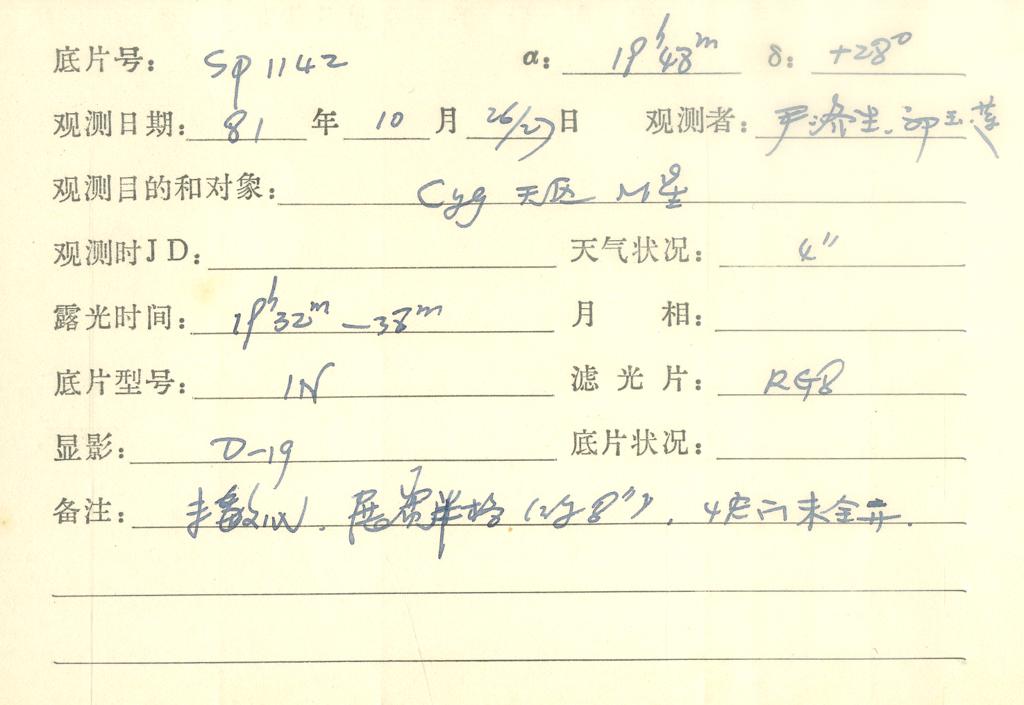 底片号: Sp 1142 α: 19h48m δ: +28°
观测日期: 81 年 10 月 26/27 日 观测者: 尹济生、邱玉莲
观测目的和对象: Cyg 天区 M星
观测时JD: 天气状况: 4"
露光时间: 19h32m—38m 月 相:
底片型号: IN 滤光片: RG8
显影: D-19 底片状况:
备注: 未敏化. 展宽半格 8") 未全开.